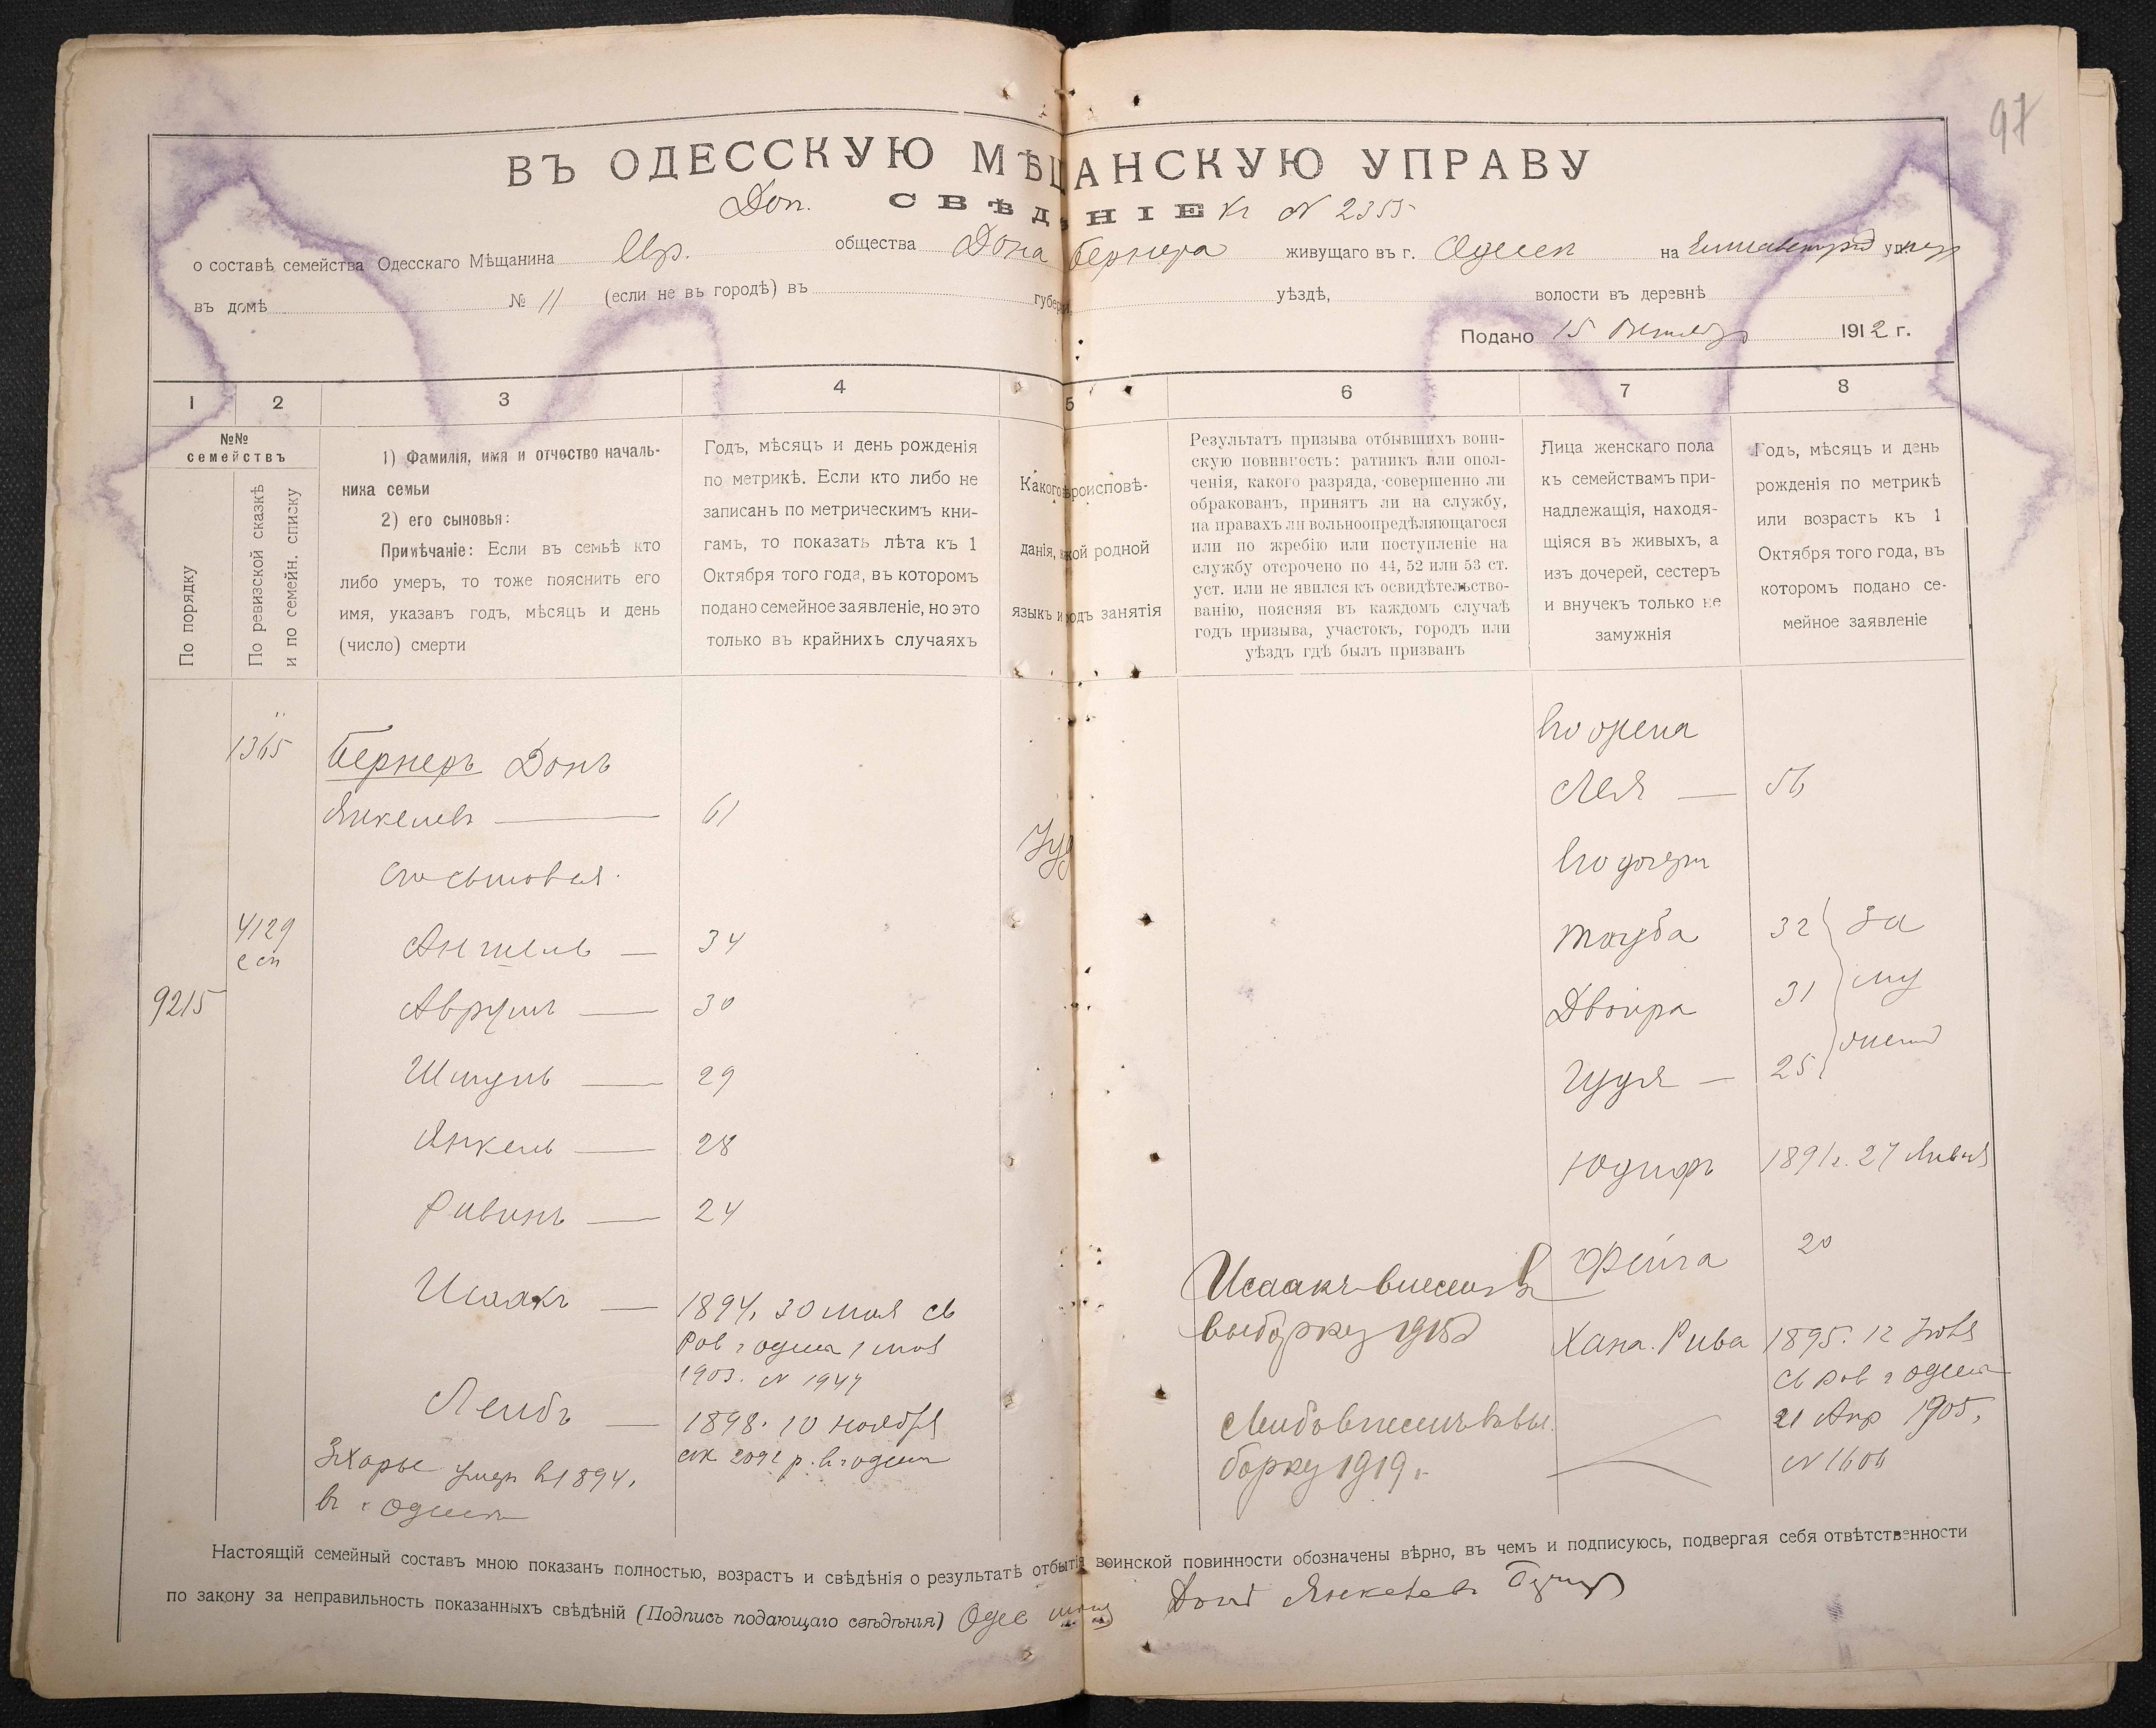 97
ВЪ ОДЕССКУЮ МѢЩАНСКУЮ УПРАВУ
Доп. СВѢДѢНІЕ къ № 2355
о составѣ семейства Одесскаго Мѣщанина Евр. общества Дона Бернера живущаго въ г. Одессѣ на
въ домѣ № 11 (если не въ городѣ) въ губерніи, уѣздѣ, волости въ деревнѣ
Подано 15 Октября 1912 г.
1 2 3 4 5 6 7 8
№№ семействъ
По порядку
По ревизской сказкѣ
и по семейн. списку
1) Фамилія, имя и отчество началь-
ника семьи
2) его сыновья:
Примѣчаніе: Если въ семьѣ кто
либо умеръ, то тоже пояснить его
имя, указавъ годъ, мѣсяцъ и день
(число) смерти
Годъ, мѣсяцъ и день рожденія
по метрикѣ. Если кто либо не
записанъ по метрическимъ кни-
гамъ, то показать лѣта къ 1
Октября того года, въ которомъ
подано семейное заявленіе, но это
только въ крайнихъ случаяхъ
Какого вѣроисповѣ-
данія, какой родной
языкъ и родъ занятія
Результатъ призыва отбывшихъ воин-
скую повинность: ратникъ или опол-
ченія, какого разряда, совершенно ли
обракованъ, принятъ ли на службу,
на правахъ ли вольноопредѣляющагося
или по жребію или поступленіе на
службу отсрочено по 44, 52 или 53 ст.
уст. или не явился къ освидѣтельство-
ванію, поясняя въ каждомъ случаѣ
годъ призыва, участокъ, городъ или
уѣздъ гдѣ былъ призванъ
Лица женскаго пола
къ семействамъ при-
надлежащія, находя-
щіяся въ живыхъ, а
изъ дочерей, сестеръ
и внучекъ только не
замужнія
Годъ, мѣсяцъ и день
рожденія по метрикѣ
или возрастъ къ 1
Октября того года, въ
которомъ подано се-
мейное заявленіе
1365 Бернеръ Донъ
Его жена
Янкелевъ — 61
Лея — 56
Іуд
его сыновья
Его дочери
4129
Аншель — 34
Тауба 32 За
9215 Аврумъ — 30
Двойра 31 му
Шмуль — 29
Гудя — 25 жемъ
Янкель — 28
Юдифь 1891г. 27 Января
Ривинъ — 24
Фейга 20
Исаакъ — 1894, 30 мая св
Ров г Одессы 1 мая
1903. № 1947
Исаакъ внесенъ въ
выборку 1915г
Хана-Рива 1895. 12 Іюля
св Ров г Одессы
21 Апр 1905,
№ 1606
Лейбъ — 1898. 10 ноября
ак 2092 р. въ г Одессѣ
Лейбъ внесенъ въ вы-
борку 1919.
Зхарье умеръ въ 1894,
въ г Одессѣ
Настоящій семейный составъ мною показанъ полностью, возрастъ и свѣдѣнія о результатѣ отбытія воинской повинности обозначены вѣрно, въ чемъ и подписуюсь, подвергая себя отвѣтственности
по закону за неправильность показанныхъ свѣдѣній (Подпись подающаго свѣдѣнія) Одес мѣщ Донъ Янкелевъ Бернеръ